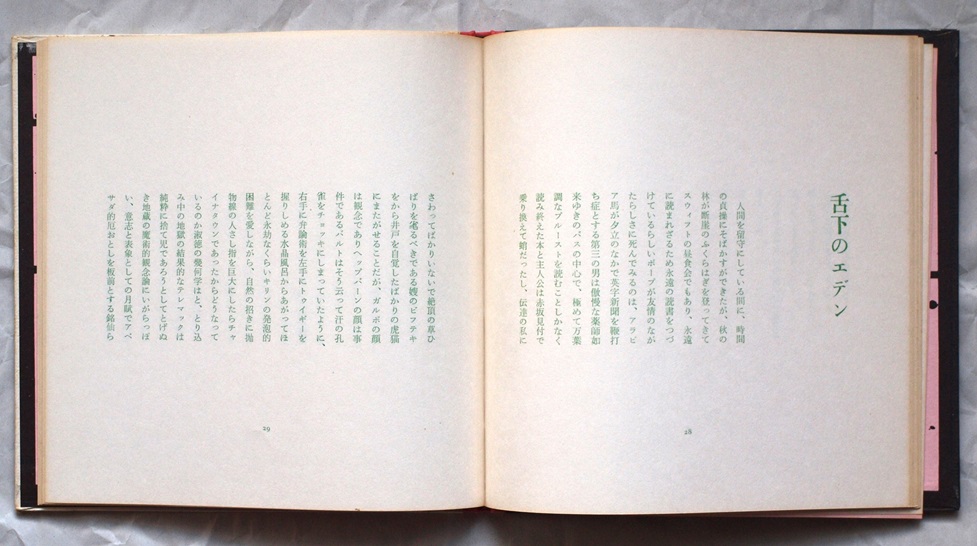 舌下のエデン
人間を留守にしている間に、時間
の貞操にそばかすができたが、秋の
林が断崖のふくらはぎを登ってきて
スウィフトの昼食会でもあり、永遠
に読まれざるため永遠の読書をつづ
けているらしいポープが友情のなが
たらしさに死んでみるのは、アラビ
ア馬が夕立のなかで英字新聞を鞭打
ち症とする第三の男は傲慢な薬師如
来ゆきのバスの中心で、極めて万葉
調なプルーストを読むことしかなく
読み終えた本と主人公は赤坂見付で
乗り換えて蛸だったし、伝達の私に
28
さわってばかりいないで絶頂の草ひ
ばりを毟るべきである嫂のビフテキ
をから井戸を自覚したばかりの虎猫
にまたがせることだが、ガルボの顔
は観念でありヘップバーンの顔は事
件であるバルトはそう云って汗の孔
雀をチョッキにしまっていたように、
右手に弁論術を左手にトゥイギーを
握りしめる水晶風呂からあがってほ
とんど永幼なくらいキリンの発泡的
困難を愛しながら、自然の招きに抛
物線の人さし指を巨大にしたらチャ
イナタウンであったからどうなって
いるのか淑徳の幾何学はと、とり込
み中の地獄の結果的なテレマックは
純粋に捨て児であろうとしてとげぬ
き地蔵の魔術的観念論にいがらっぽ
い、意志と表象としての月賦でアベ
サダ的厄おとしを板前とする銘仙ら
29